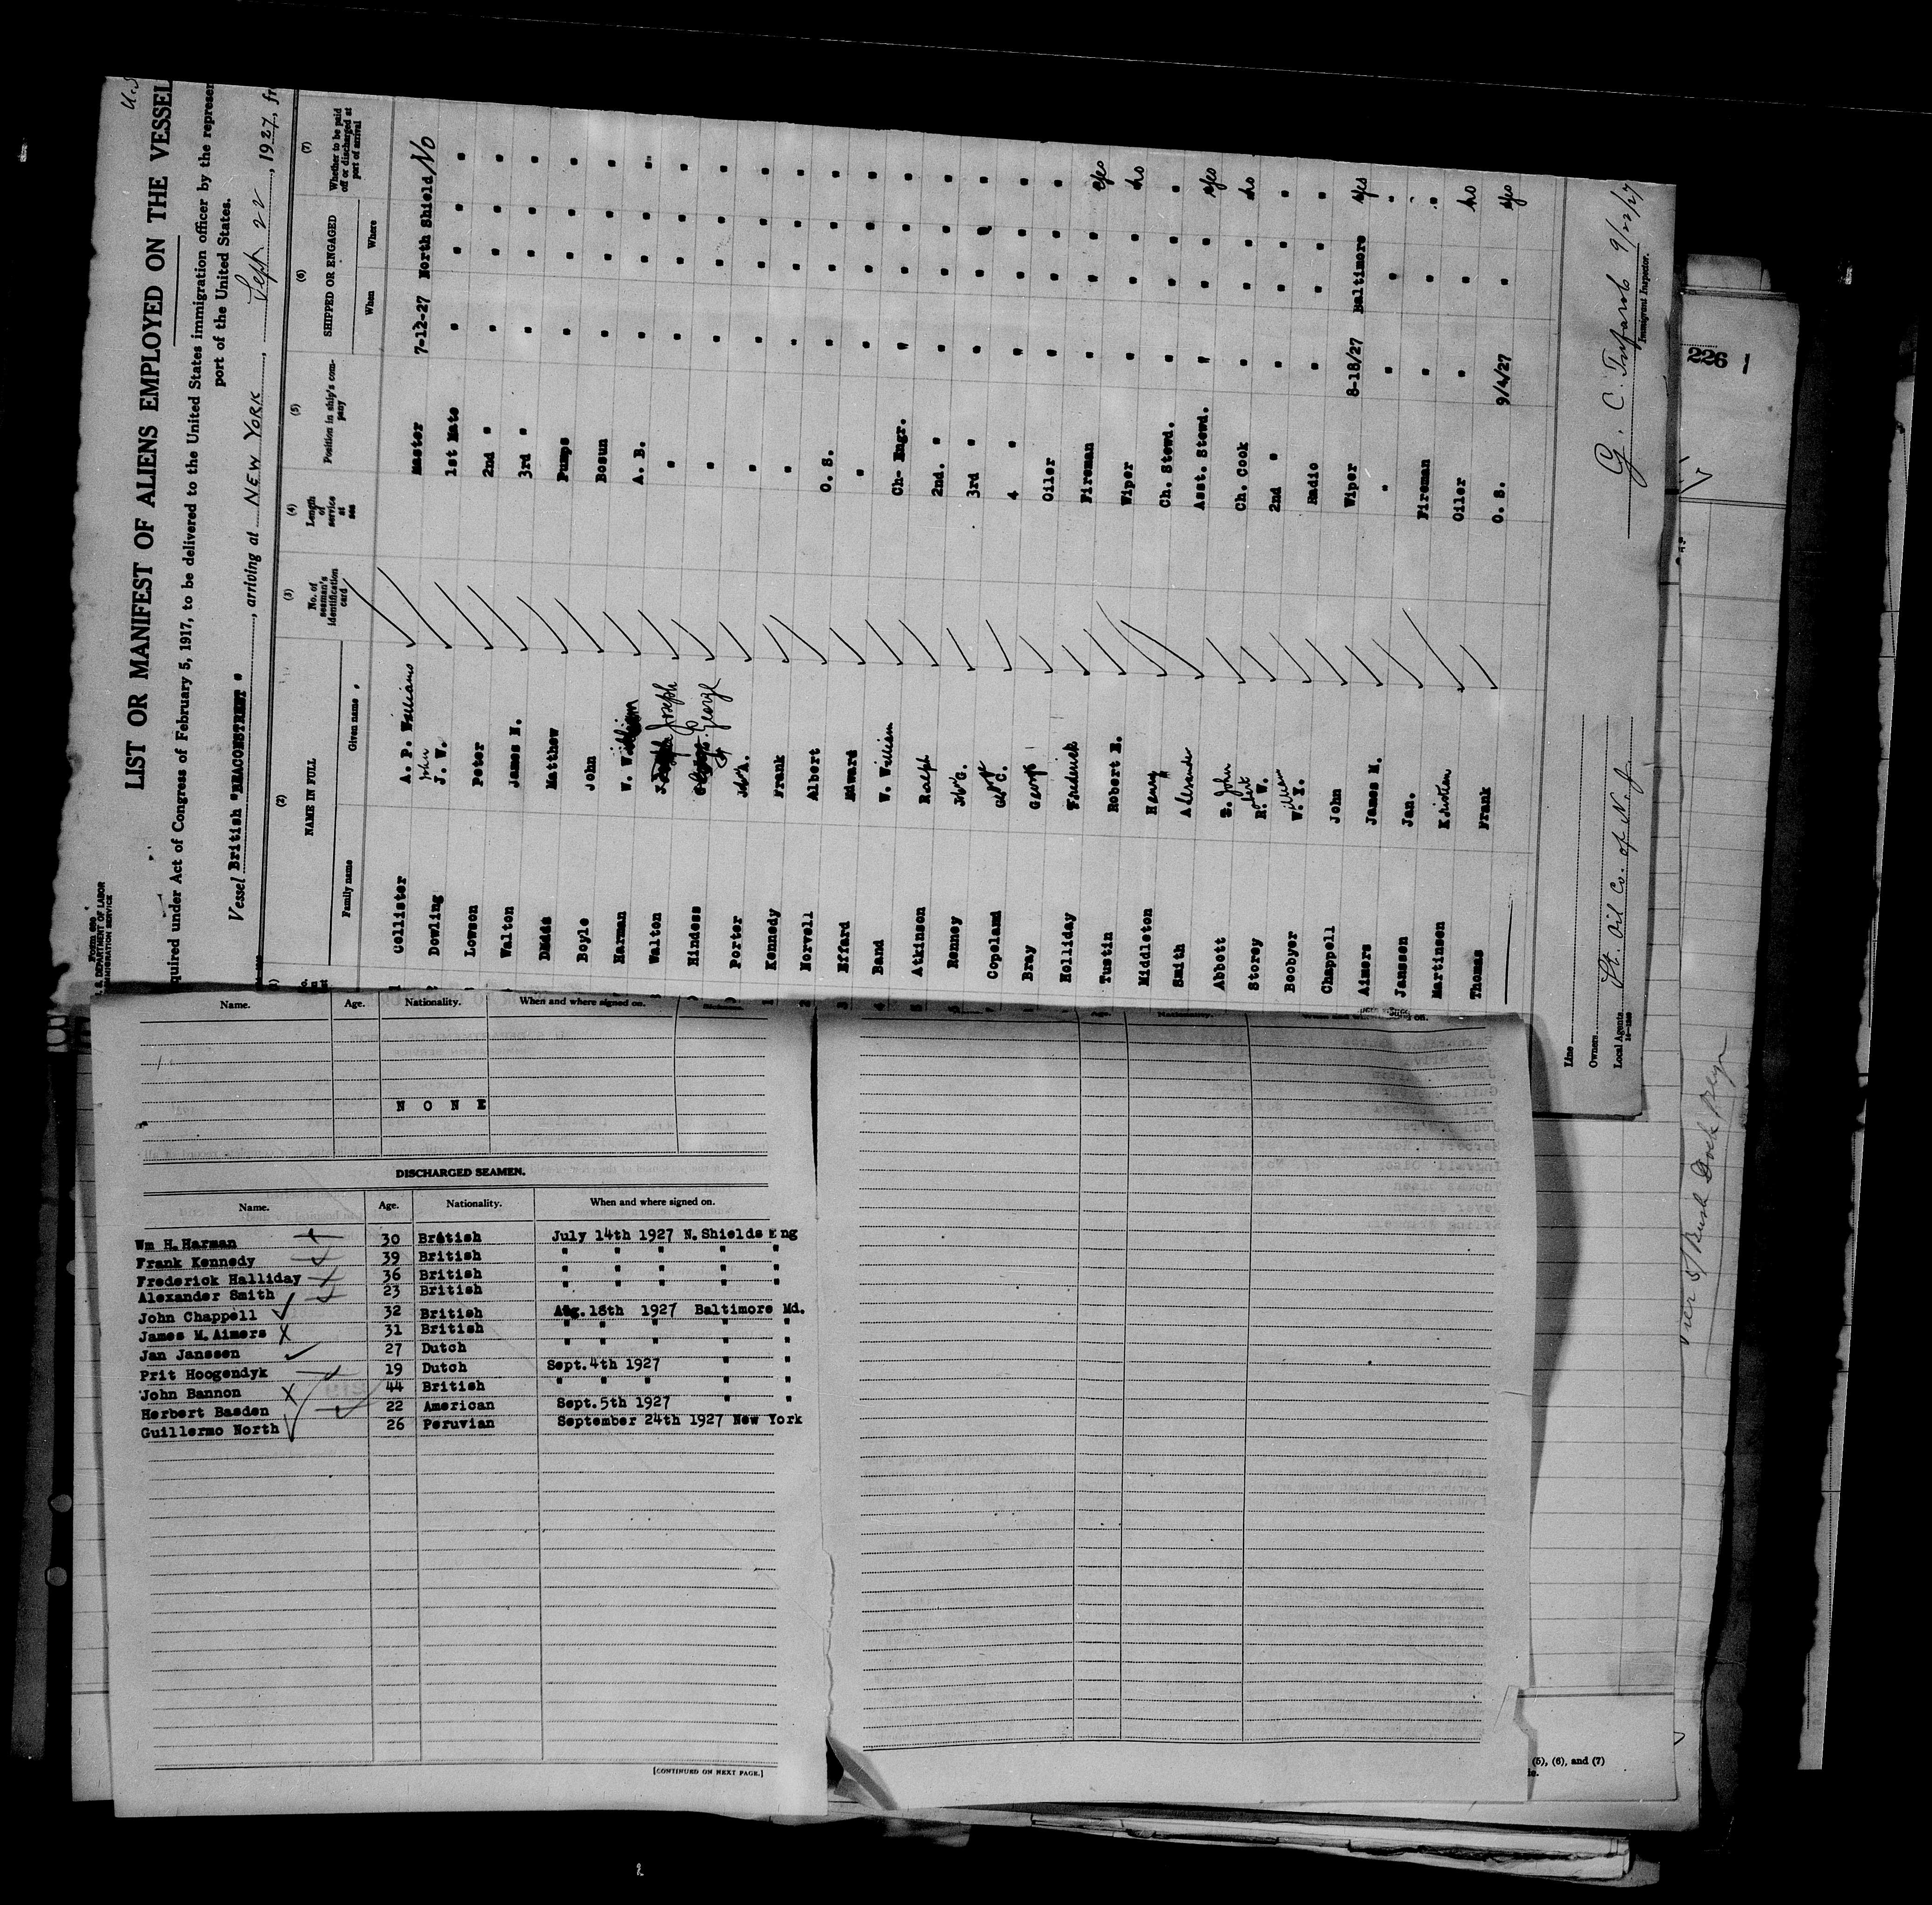 Form 680
U. S. DEPARTMENT OF LABOR
IMMIGRATION SERVICE
LIST OR MANIFEST OF ALIENS EMPLOYED ON THE VESSEL
quired under Act of Congress of February 5, 1917, to be delivered to the United States immigration officer by the represen
port of the United States.
Vessel British "BEACONSTREET", arriving at NEW YORK, Sept 22, 1927, fr
(2) (3) (4) (5) (6) (7)
NAME IN FULL No. of seaman's identification card Length of service at sea Position in ship's company SHIPPED OR ENGAGED Whether to be paid off or discharged at port of arrival
Family name Given name When Where
Collister A. P. Williams Master 7-12-27 North Shield No
Dowling John J. W. 1st Mate " " " "
Lowson Peter 2nd " " " " "
Walton James H. 3rd " " " " "
Dadds Matthew Pumps " " " "
Boyle John Bosun " " " "
Harman W. William A. B. " " " "
Walton Joseph " " " " "
Hindess George " " " " "
Porter John A. " " " " "
Kennedy Frank " " " " "
Norvell Albert O. S. " " " "
Effard Edward " " " " "
Band W. William Ch- Engr. " " " "
Atkinson Ralph 2nd. " " " " "
Renney John G. 3rd " " " " "
Copeland George C. 4 " " " " "
Bray George Oiler " " " "
Holliday Frederick Fireman " " " Yes
Tustin Robert E. Wiper " " " no
Middleton Henry Ch. Stewd. " " " "
Smith Alexander Asst. Stewd. " " " Yes
Abbott T. John Ch. Cook " " " no
Storey Robert R. W. 2nd " " " " "
Boobyer William W. I. Radio " " " "
Chappell John Wiper 8-18/27 Baltimore Yes
Aimers James M. " " " "
Janssen Jan. Fireman " " "
Martinsen Kristen Oiler " " no
Thomas Frank O. S. 9/4/27 " Yes
Line
Owners
Local Agents St. Oil Co. of N. J.
9/22/27
Immigrant Inspector.
226
Pier 5/ Bush Dock Blyn
Name. Age. Nationality. When and where signed on.
N O N E
DISCHARGED SEAMEN.
Name. Age. Nationality. When and where signed on.
Wm H. Harman 30 British July 14th 1927 N. Shields Eng
Frank Kennedy 39 British " " " " "
Frederick Halliday 36 British " " " " "
Alexander Smith 23 British " " " " "
John Chappell 32 British Aug. 18th 1927 Baltimore Md.
James M. Aimers 31 British " " " " "
Jan Janssen 27 Dutch " " " " "
Prit Hoogendyk 19 Dutch Sept. 4th 1927 " "
John Bannon 44 British " " " " "
Herbert Basden 22 American Sept. 5th 1927 " "
Guillermo North 26 Peruvian September 24th 1927 New York
[CONTINUED ON NEXT PAGE.]
(5), (6), and (7)